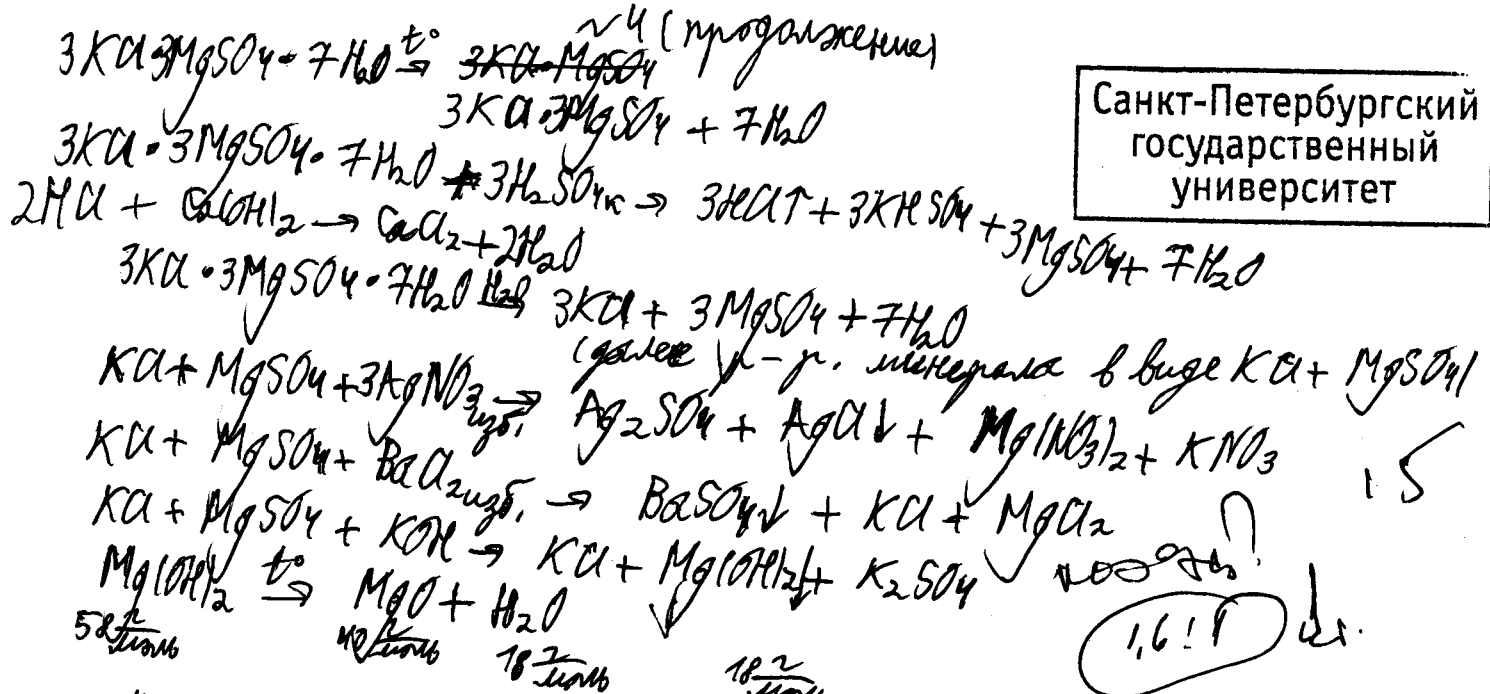 №4 (продолжение)
3KCl·3MgSO4·7H2O t°→ 3KCl·MgSO4
3KCl·3MgSO4 + 7H2O
Санкт-Петербургский
государственный
университет
3KCl·3MgSO4·7H2O + 3H2SO4к → 3HCl↑ + 3KHSO4 + 3MgSO4 + 7H2O
2HCl + Ca(OH)2 → CaCl2 + 2H2O
3KCl·3MgSO4·7H2O H2O→ 3KCl + 3MgSO4 + 7H2O
(далее р-р. минерала в виде KCl + MgSO4)
KCl + MgSO4 + 3AgNO3 изб. → Ag2SO4 + AgCl↓ + Mg(NO3)2 + KNO3
KCl + MgSO4 + BaCl2 изб. → BaSO4↓ + KCl + MgCl2
15
KCl + MgSO4 + KOH → KCl + Mg(OH)2↓ + K2SO4
Mg(OH)2 t°→ MgO + H2O
58 г/моль 40 г/моль 18 г/моль 18 г/моль
1,6!